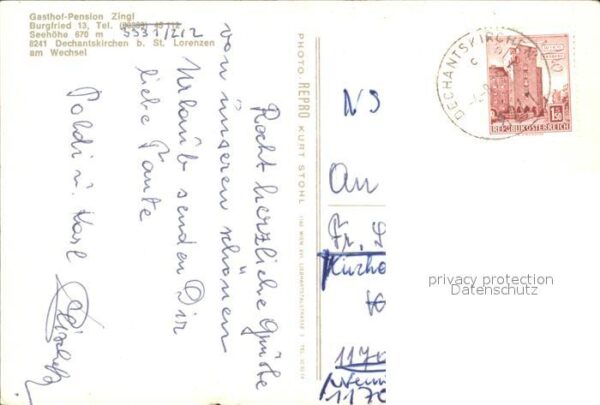 Gasthof-Pension Zingl
Burgfried 13, Tel.
5531/212
Seehöhe 670 m
8241 Dechantskirchen b. St. Lorenzen
am Wechsel
Recht herzliche Grüße
von unseren schönen
Urlaub senden Dir
liebe Tante
Poldi u. Karl
PHOTO-REPRO KURT STOHL
DECHANTSKIRCHEN
1.50
REPUBLIK ÖSTERREICH
An
Fr.
1170
1170
privacy protection
Datenschutz